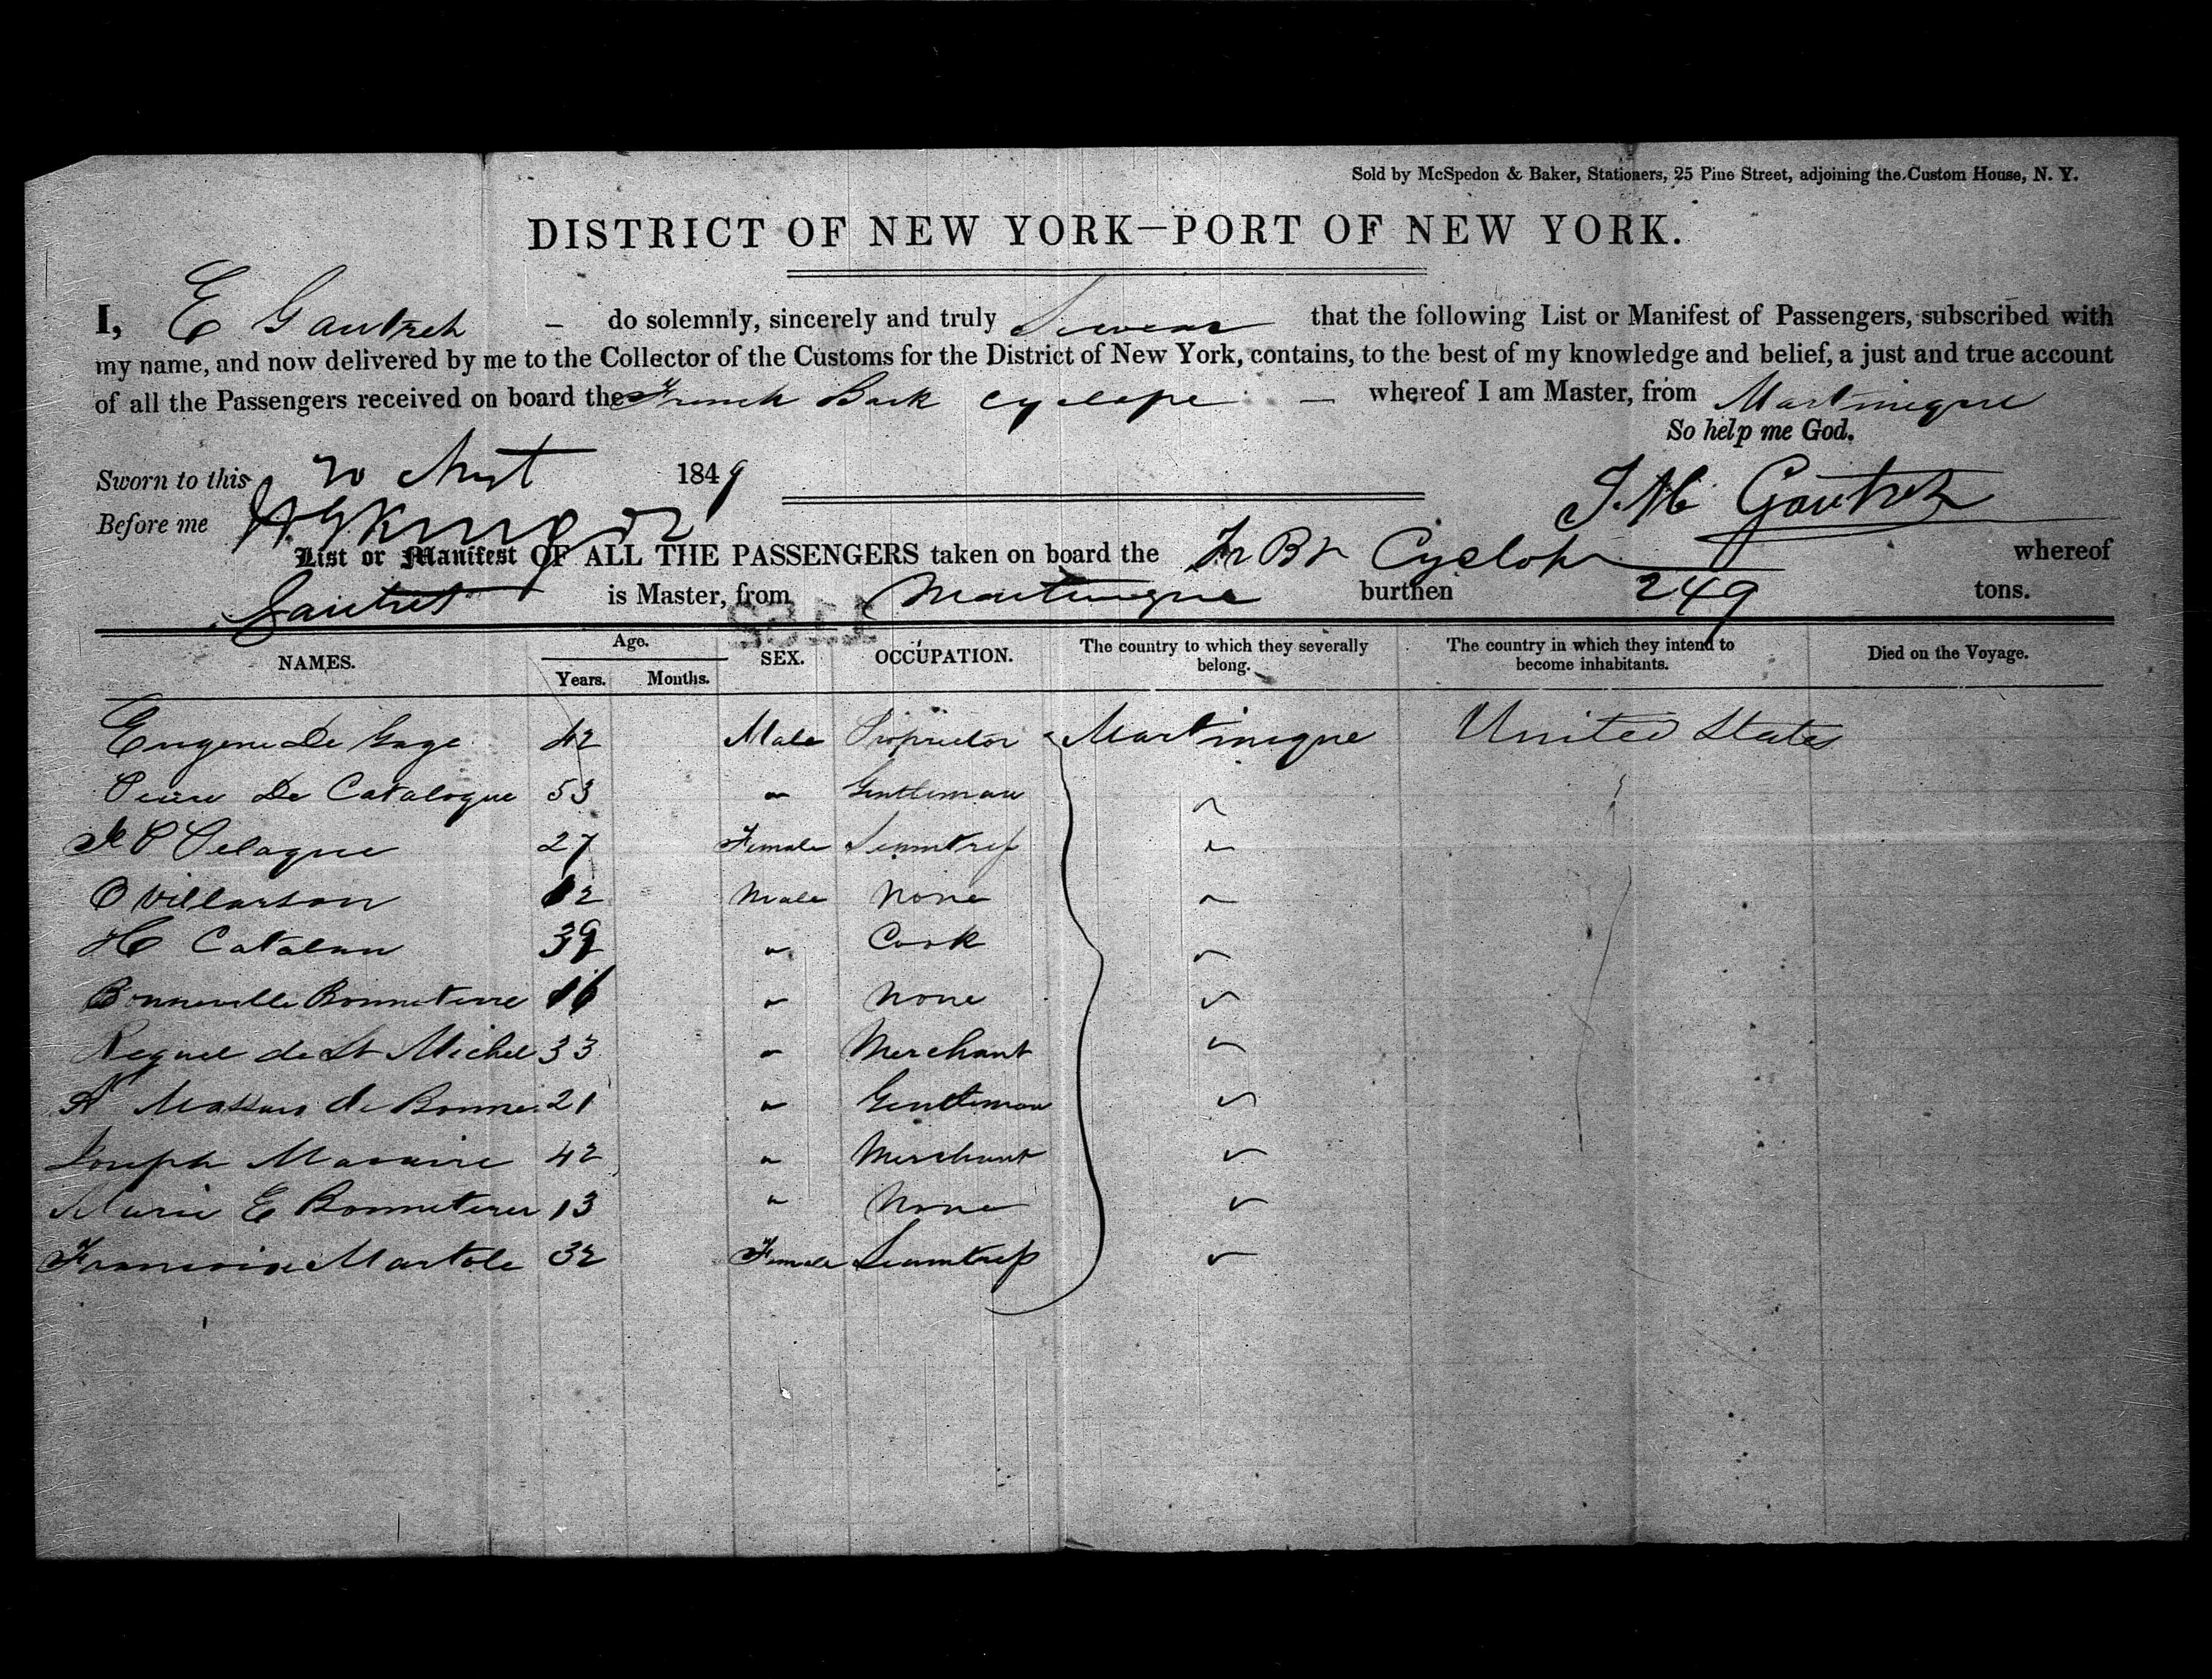 Sold by McSpedon & Baker, Stationers, 25 Pine Street, adjoining the Custom House, N. Y.
DISTRICT OF NEW YORK—PORT OF NEW YORK.
I, E Gautreh – do solemnly, sincerely and truly Swear that the following List or Manifest of Passengers, subscribed with
my name, and now delivered by me to the Collector of the Customs for the District of New York, contains, to the best of my knowledge and belief, a just and true account
of all the Passengers received on board the French Bark Cyclope – whereof I am Master, from Martinique
So help me God.
Sworn to this 20 Augt 1849
Before me
Gautreh
List or Manifest OF ALL THE PASSENGERS taken on board the Fr Bk Cyclope whereof
Gautret is Master, from Martinique burthen 249 tons.
NAMES. Age. Years. Months. SEX. OCCUPATION. The country to which they severally belong. The country in which they intend to become inhabitants. Died on the Voyage.
Eugene De Gage 42 Male Proprietor Martinique United States
De Catalogue 53 " Gentleman "
Pelagne 27 Female Seamtress "
O Villarson 12 Male None "
H Catalan 39 " Cook "
Bonneville Bonneterre 16 " None "
de St Michel 33 " Merchant "
de Bonne 21 " Gentleman "
Joseph 42 " Merchant "
Marie E Bonneterre 13 " None "
Martole 32 Female Seamtress "